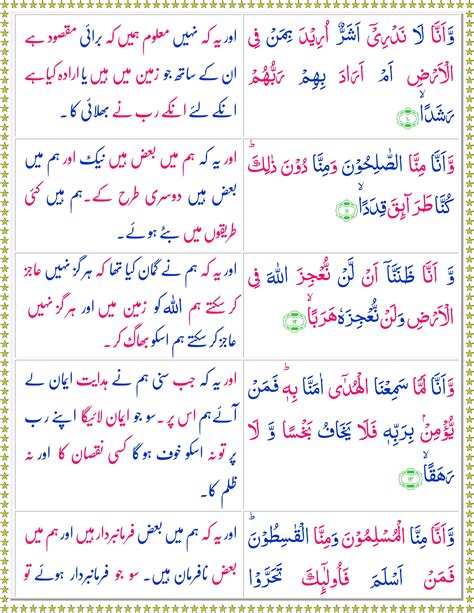 وَّاَنَّا لَا نَدْرِیْۤ اَشَرٌّ اُرِیْدَ بِمَنْ فِی
الْاَرْضِ اَمْ اَرَادَ بِهِمْ رَبُّهُمْ
رَشَدًاۙ ﴿۱۰﴾
اور یہ کہ نہیں معلوم ہمیں کہ برائی مقصود ہے
ان کے ساتھ جو زمین میں ہیں یا ارادہ کیا ہے
انکے لئے انکے رب نے بھلائی کا ۔
وَّاَنَّا مِنَّا الصّٰلِحُوْنَ وَمِنَّا دُوْنَ ذٰلِكَؕ
كُنَّا طَرَآىِٕقَ قِدَدًاۙ ﴿۱۱﴾
اور یہ کہ ہم میں بعض ہیں نیک اور ہم میں
بعض ہیں دوسری طرح کے۔ہم ہیں کئی
طریقوں میں بٹے ہوئے۔
وَّ اَنَّا ظَنَنَّاۤ اَنْ لَّنْ نُّعْجِزَ اللّٰهَ فِی
الْاَرْضِ وَلَنْ نُّعْجِزَهٗ هَرَبًاۙ ﴿۱۲﴾
اور یہ کہ ہم نے گمان کیا تھا کہ ہرگز نہیں عاجز
کر سکتے ہم اللہ کو زمین میں اور ہرگز نہیں
عاجز کرسکتے ہم اسکو بھاگ کر۔
وَّاَنَّا لَمَّا سَمِعْنَا الْهُدٰۤی اٰمَنَّا بِهٖؕ فَمَنْ
یُّؤْمِنْۢ بِرَبِّهٖ فَلَا یَخَافُ بَخْسًا وَّ لَا
رَهَقًاۙ ﴿۱۳﴾
اور یہ کہ جب سنی ہم نے ہدایت ایمان لے
آئےہم اس پر۔سو جو ایمان لائیگا اپنے رب
پر تو نہ اسکو خوف ہوگا کسی نقصان کا اور نہ
ظلم کا۔
وَّاَنَّا مِنَّا الْمُسْلِمُوْنَ وَمِنَّا الْقٰسِطُوْنَؕ
فَمَنْ اَسْلَمَ فَاُولٰٓىِٕكَ تَحَرَّوْا
اور یہ کہ ہم میں بعض فرمانبردار ہیں اور ہم میں
بعض نافرمان ہیں۔ سو جو فرمانبردار ہوئے تو